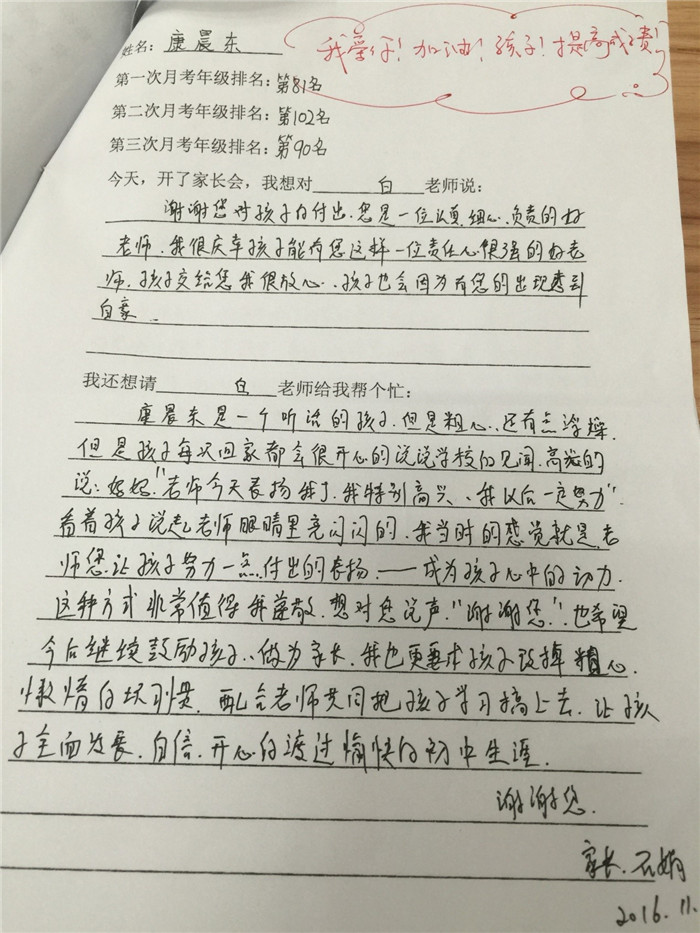 姓名：康晨东
我举行！加油！孩子！提高成绩！
第一次月考年级排名：第81名
第二次月考年级排名：第102名
第三次月考年级排名：第90名
今天，开了家长会，我想对 白 老师说：
谢谢您对孩子的付出.您是一位认真.细心.负责的好
老师.我很庆幸孩子能有您这样一位责任心很强的好老
师.孩子交给您我很放心..孩子也会因为有您的出现感到
自豪.
我还想请 白 老师给我帮个忙：
康晨东是一个听话的孩子.但是粗心..还有点浮燥.
但是孩子每次回家都会很开心的说说学校的见闻.高兴的
说：妈妈."老师今天表扬我了.我特别高兴、我以后一定努力"
看着孩子说起老师眼睛里亮闪闪的.我当时的感觉就是.老
师您.让孩子努力一点.付出的表扬.——成为孩子心中的动力.
这种方式非常值得我尊敬.想对您说声."谢谢您."也希望
今后继续鼓励孩子..做为家长.我也更要求孩子改掉粗心.
懒惰的坏习惯.配合老师共同把孩子学习搞上去.让孩
子全面发展.自信.开心的渡过愉快的初中生涯.
谢谢您.
家长.石娟
2016.11.